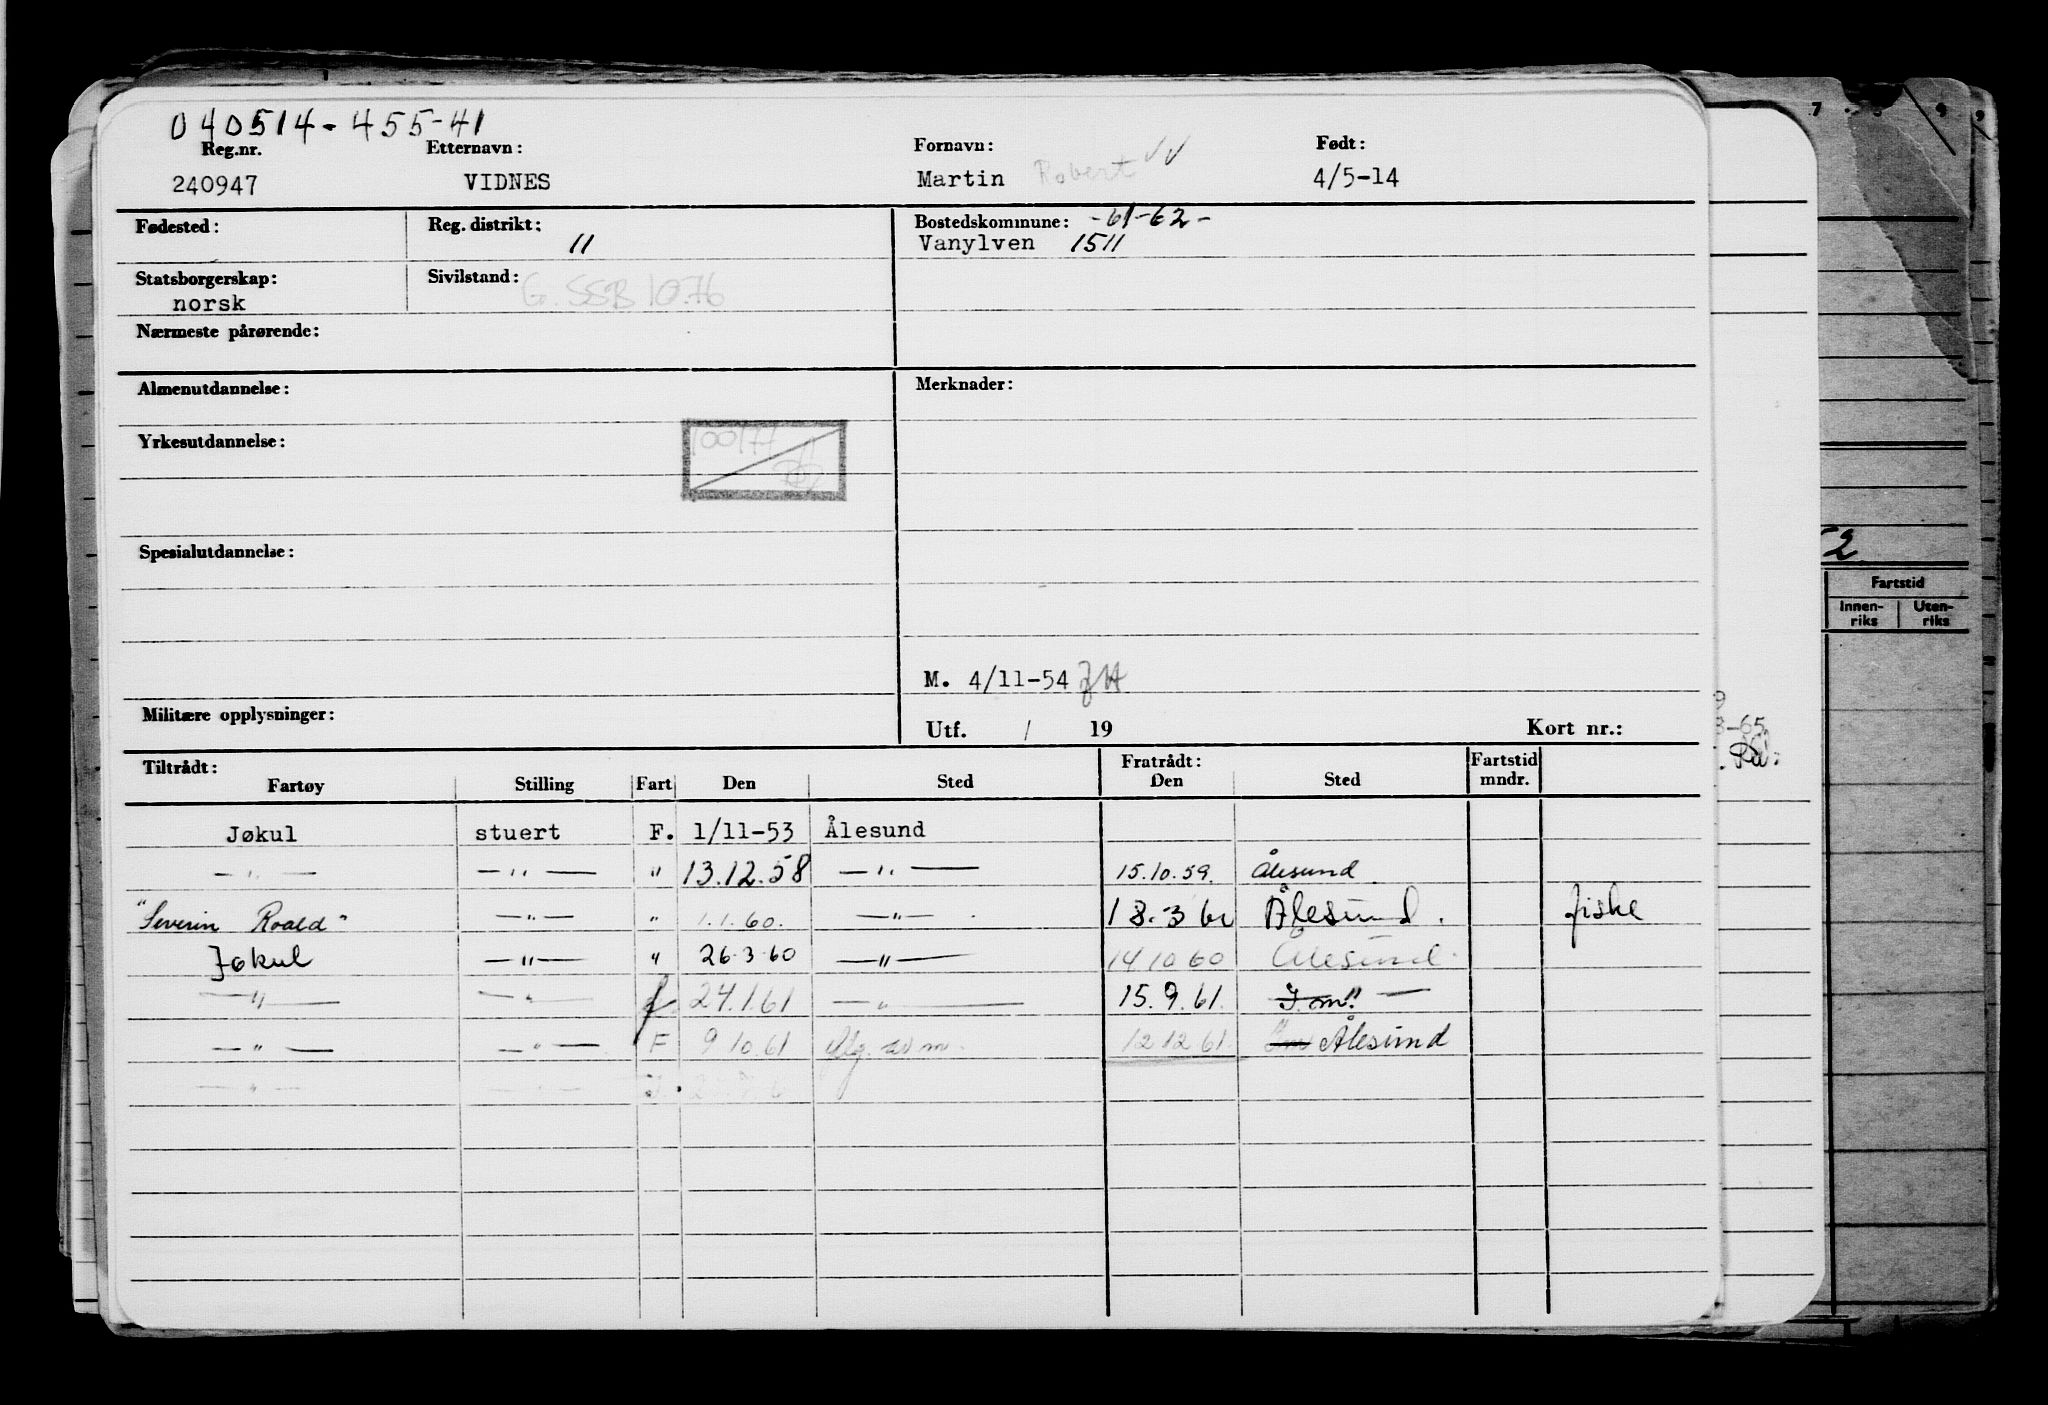 040514-455-41
Reg.nr. Etternavn: Fornavn: Født:
240947 VIDNES Martin Robert 4/5-14
Fødested: Reg. distrikt: 11 Bostedskommune: -61-62-
Vanylven 1511
Statsborgerskap: Sivilstand: G. SSB 10.76
norsk
Nærmeste pårørende:
Almenutdannelse: Merknader:
Yrkesutdannelse:
Spesialutdannelse:
M. 4/11-54
Militære opplysninger: Utf. / 19 Kort nr.:
Tiltrådt: Fratrådt: Fartstid
Fartøy Stilling Fart Den Sted Den Sted mndr.
Jøkul stuert F. 1/11-53 Ålesund
—"— —"— " 13.12.58 —"— 15.10.59. Ålesund
"Severin Roald" —"— " 1.1.60. —"— 18.3 60 Ålesund. fiske
Jøkul —"— " 26.3.60 —"— 14 10 60 Ålesund.
—"— —"— f 24.1.61 —"— 15.9.61. —"—
—"— —"— F 9 10.61 12 12 61. Ålesund
—"— —"—
52
Fartstid
Innen-riks Uten-riks
-65